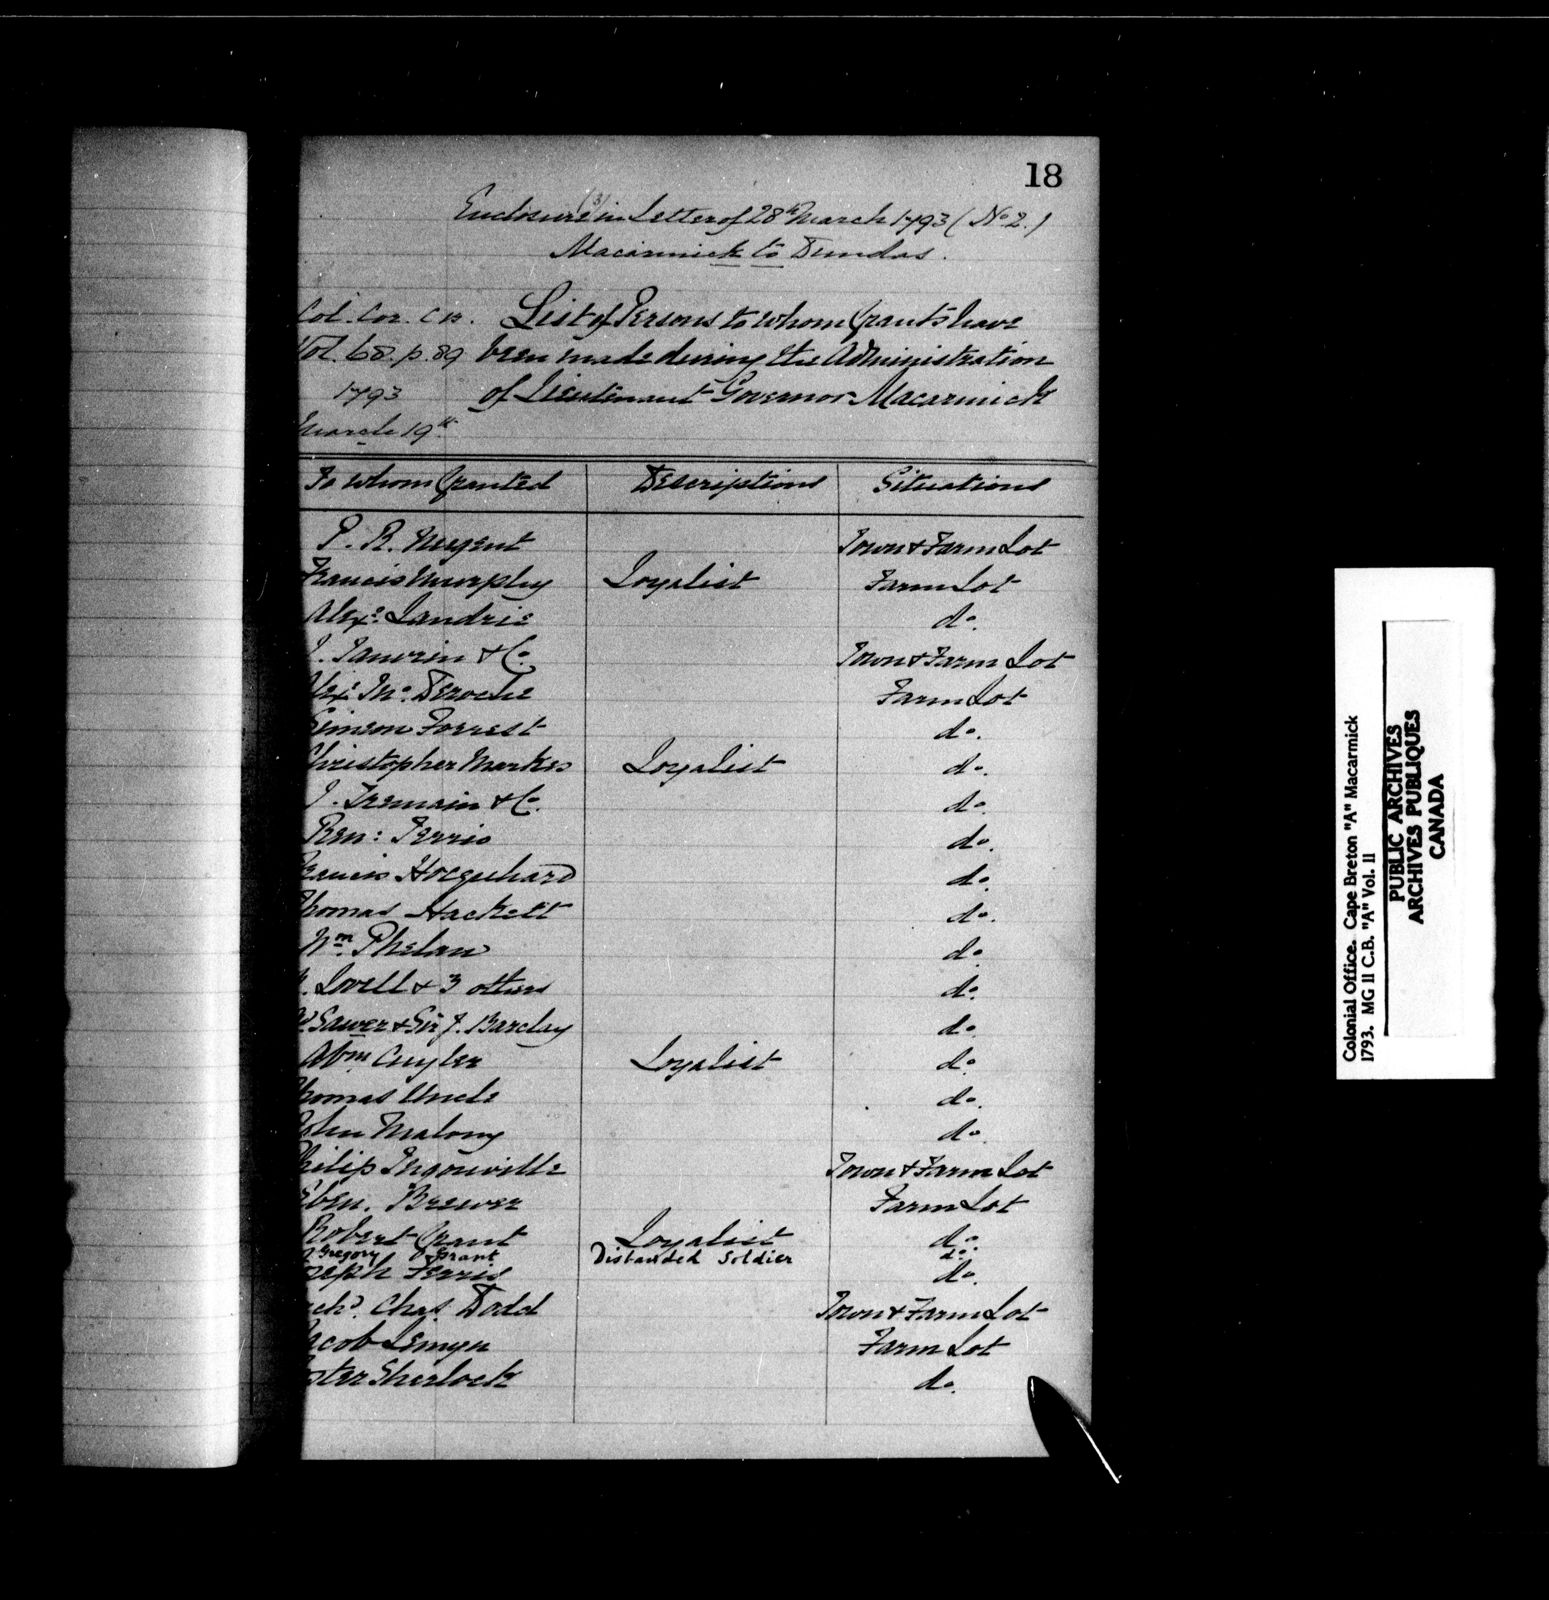 18
Enclosure (3) in Letter of 28th March 1793 (No 2.)
Macarmick to Dundas.
Col. Cor. C B. List of Persons to whom Grants have
Vol. 68. p. 89 been made during the Administration
1793 of Lieutenant Governor Macarmick
March 19th
To whom Granted Descriptions Situations
P. R. Nugent Town & Farm Lot
Francis Murphy Loyalist Farm Lot
Alexr Landrie do.
J. Janvrin & Co. Town & Farm Lot
Deroche Farm Lot
Simeon Forrest do.
Christopher Markes Loyalist do.
J. Tremain & Co. do.
Ben: Ferris do.
Francis do.
Thomas Hackett do.
Wm Phelan do.
Lovell & 3 others do.
Sawer & Sir J. Barclay do.
Abm Cuyler Loyalist do.
Thomas Uncle do.
John Malony do.
Philip Ingouville Town & Farm Lot
Eben. Brewer Farm Lot
Robert Grant Loyalist do.
Gregory Grant Disbanded Soldier do.
Joseph Ferris do.
Archd. Chas. Dodd Town & Farm Lot
Jacob Farm Lot
Sherlock do.
Colonial Office. Cape Breton "A" Macarmick
1793. MG 11 C.B. "A" Vol. 11
PUBLIC ARCHIVES
ARCHIVES PUBLIQUES
CANADA